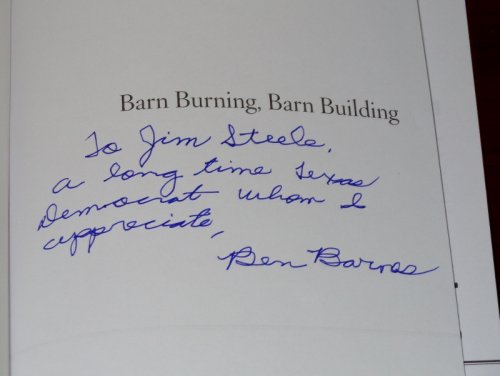 Barn Burning, Barn Building
To Jim Steele,
a long time Texas
Democrat whom I
appreciate,
Ben Barnes